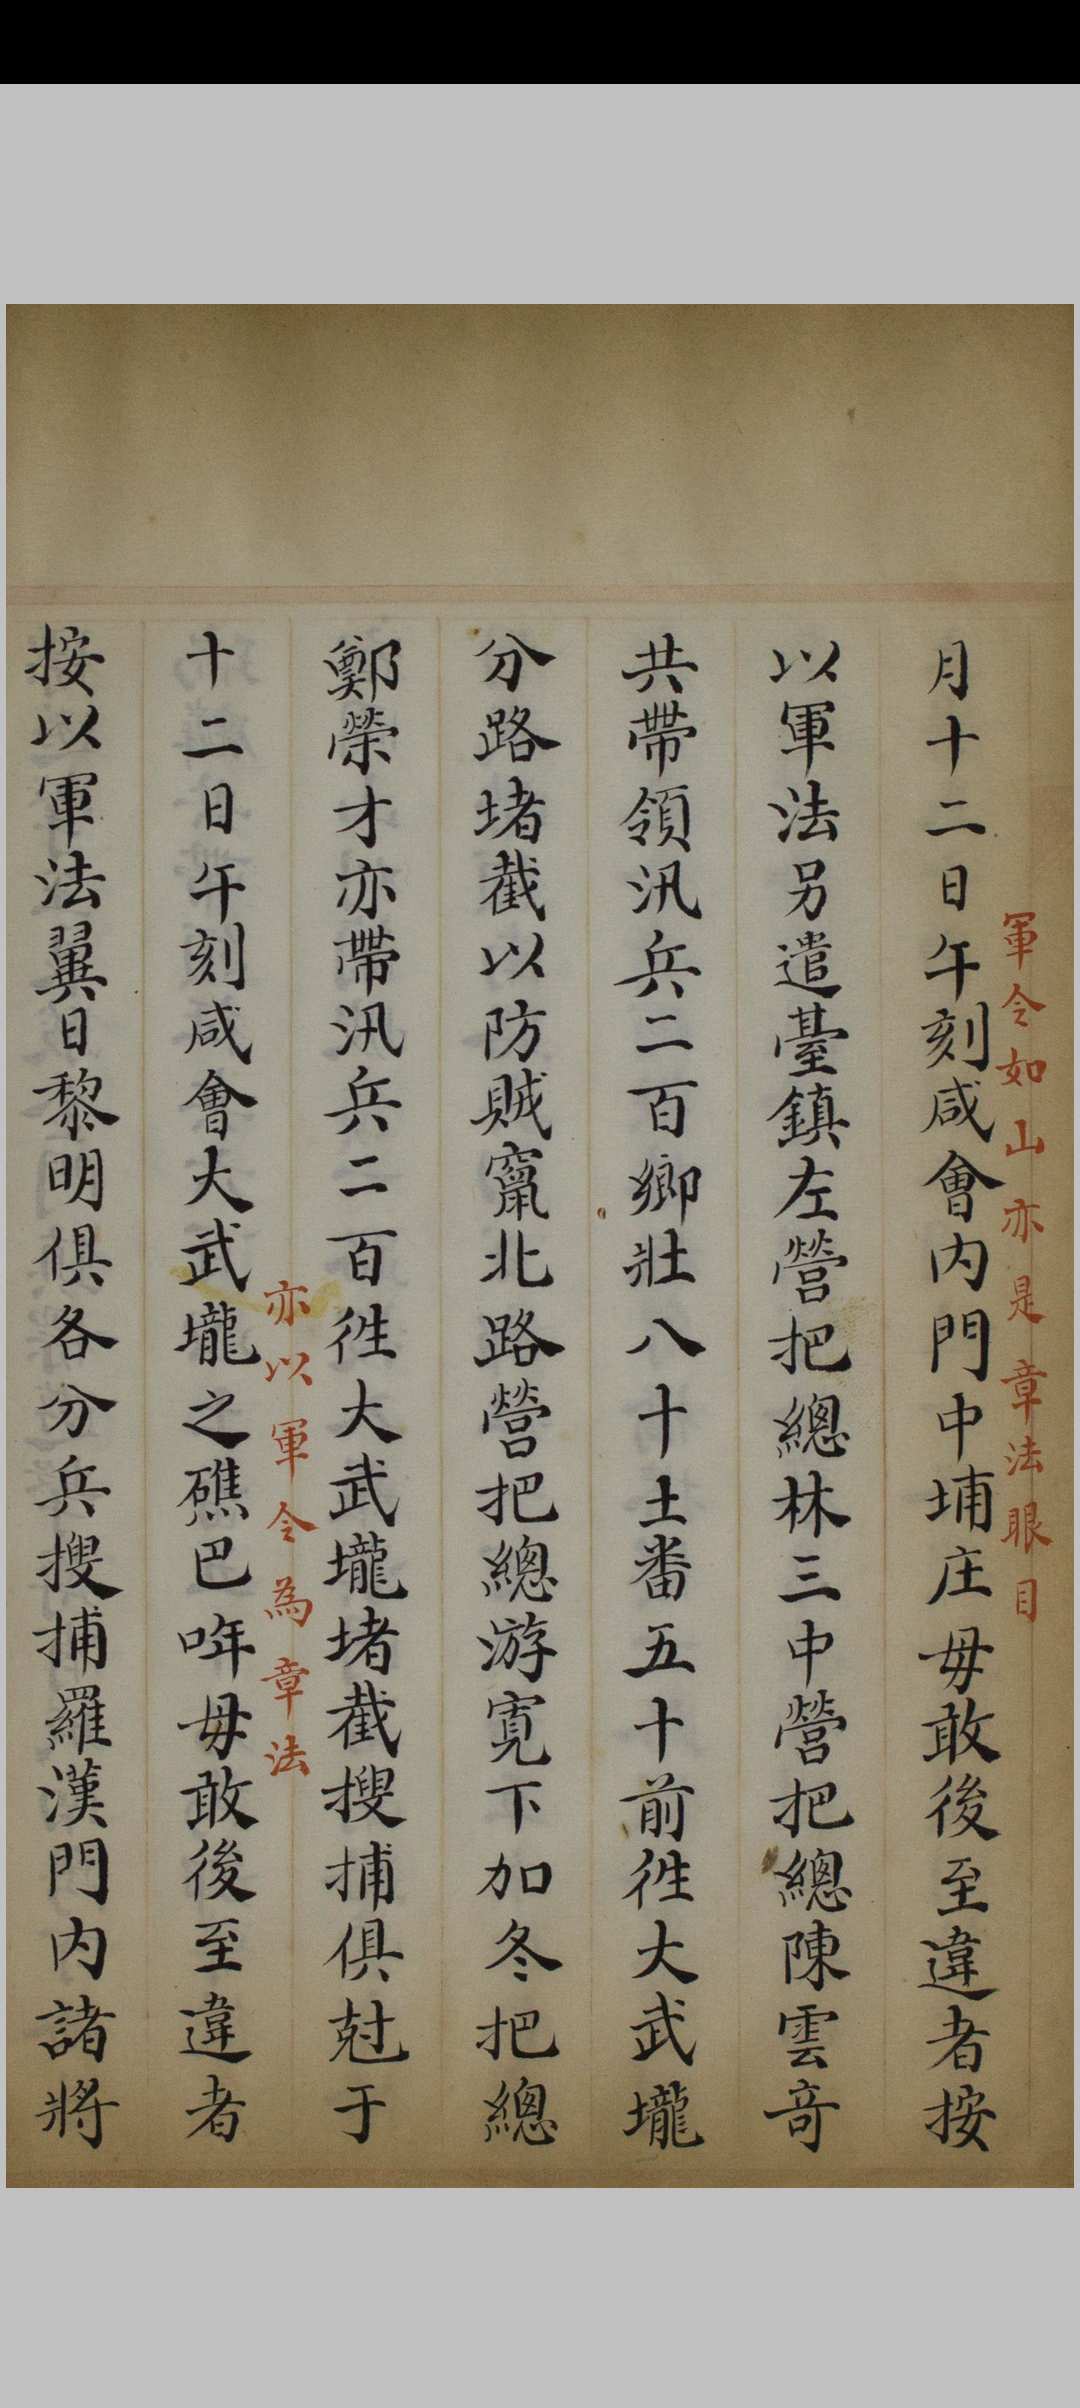 軍令如山亦是章法眼目
月十二日午刻咸會内門中埔庄毋敢後至違者按
以軍法另遣臺鎮左營把總林三中營把總陳雲竒
共帶領汛兵二百鄉壯八十土番五十前徃大武壠
分路堵截以防賊竄北路營把總游寛下加冬把總
鄭榮才亦帶汛兵二百徃大武壠堵截搜捕俱尅于
亦以軍令為章法
十二日午刻咸會大武壠之礁巴哖毋敢後至違者
按以軍法翼日黎明俱各分兵搜捕羅漢門内諸將